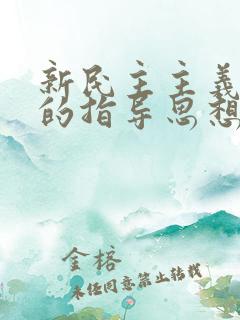 新民主主义
的指导思想
金榕
未经同意禁止转载